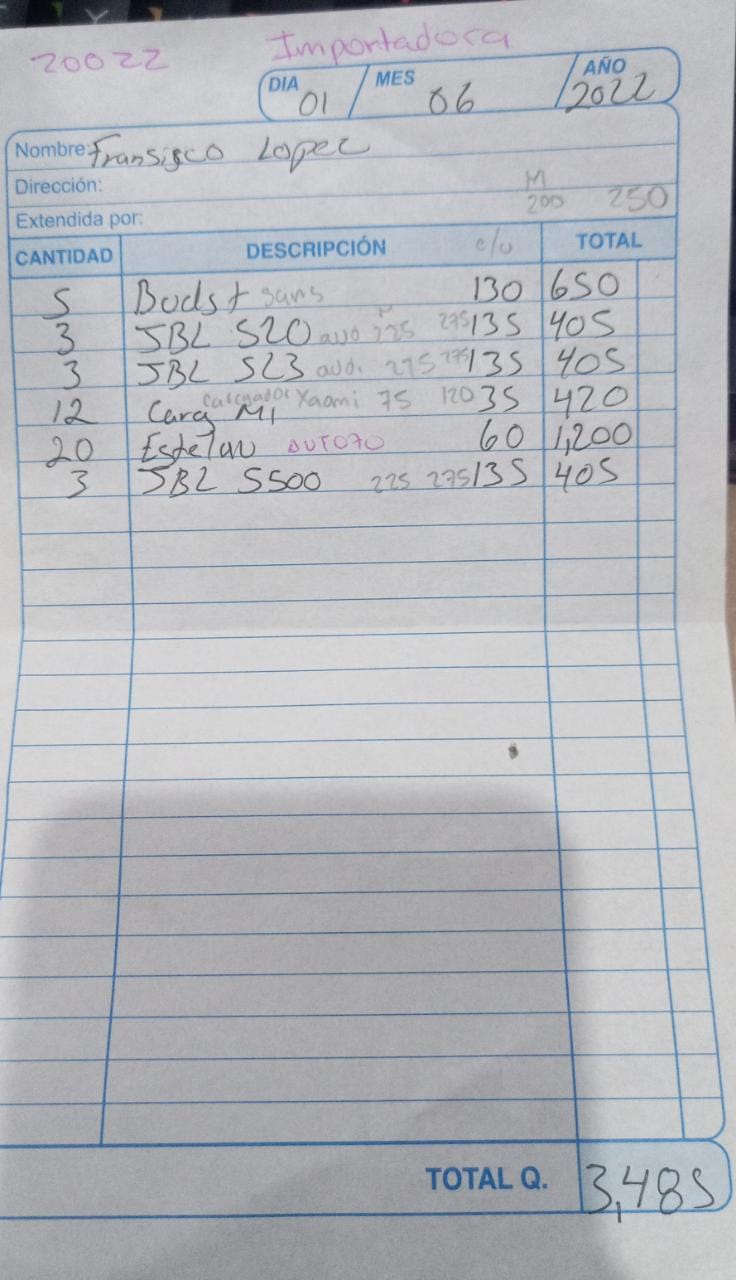 20022 Importadora
DIA 01 MES 06 AÑO 2022
Nombre: Fransisco Lopez
Dirección:
M
Extendida por: 200 250
CANTIDAD DESCRIPCIÓN c/u TOTAL
5 Buds + 130 650
M
3 JBL S20 aud 225 275 135 405
3 JBL S23 aud. 275 135 405
Cargador Xaomi
12 Carg MI 75 120 35 420
20 60 1,200
3 JBL S500 225 275 135 405
TOTAL Q. 3,485